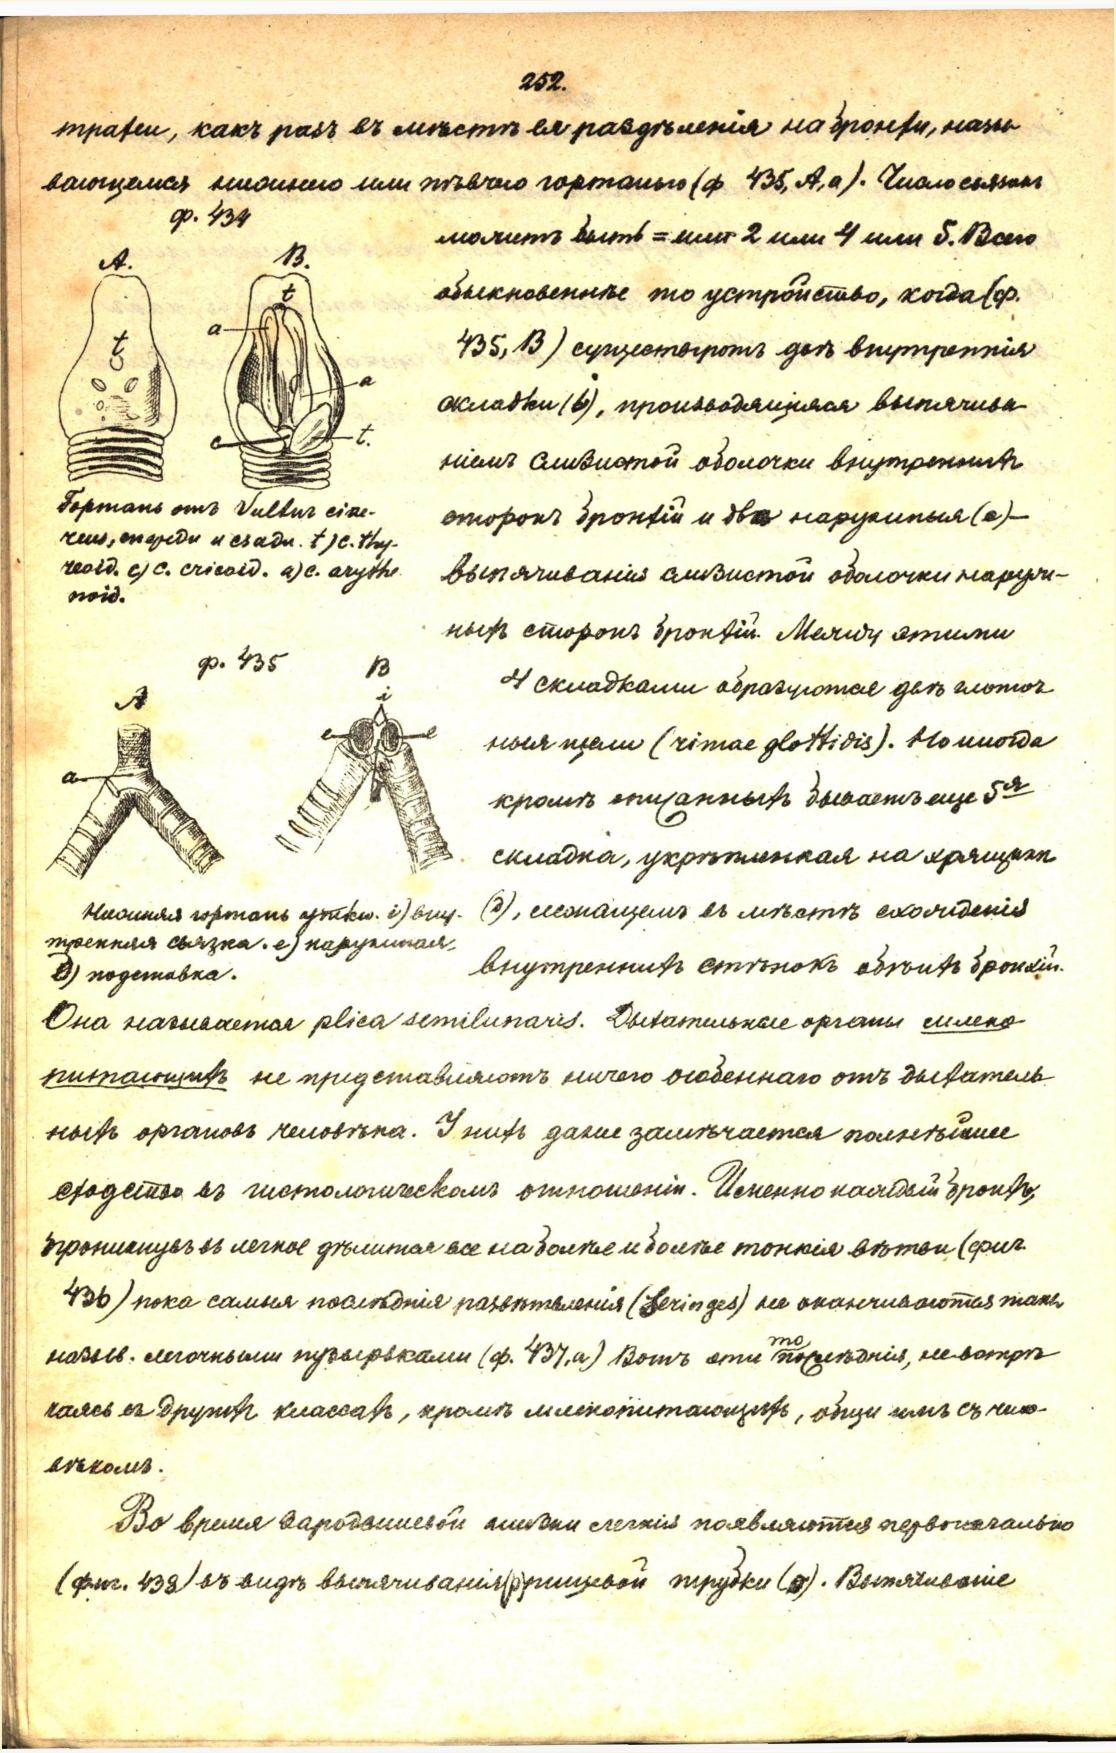 252.
трахеи, какъ разъ въ мѣстѣ ея раздѣленія на бронхи, назы
вающемся нижнею или пѣвчею гортанью (ф 435, А, а). Число связокъ
ф. 434
можетъ быть = или 2 или 4 или 5. Всего
А. В.
t
обыкновеннѣе то устройство, когда (ф.
a
t
435, В) существуютъ двѣ внутреннія
a
складки (i), производящіяся выпячива
c t.
ніемъ слизистой оболочки внутреннихъ
Гортань отъ Vultur cine-
reus, спереди и сзади. t) c. thy-
reoid. c) c. cricoid. a) c. arythe
noid.
сторонъ бронхій и двѣ наружныя (е) —
выпячиванія слизистой оболочки наруж-
ныхъ сторонъ бронхій. Между этими
ф. 435
А В
i
4 складками образуются двѣ глоточ
e e
ныя щели (rimae glottidis). Но иногда
a
кромѣ описанныхъ бываетъ еще 5я
складка, укрѣпленная на хрящикѣ
Нижняя гортань утки. i) вну-
тренняя связка. e) наружная.
д) подставка.
(д), лежащемъ въ мѣстѣ схожденія
внутреннихъ стѣнокъ обѣихъ бронхій.
Она называется plica semilunaris. Дыхательные органы млеко
питающихъ не представляютъ ничего особеннаго отъ дыхатель
ныхъ органовъ человѣка. У нихъ даже замѣчается полнѣйшее
сходство въ гистологическомъ отношеніи. Именно каждый бронхъ,
проникнувъ въ легкое дѣлится все на болѣе и болѣе тонкія вѣтви (фиг.
436) пока самыя послѣднія развѣтвленія не оканчиваются такъ
назыв. легочными пузырьками (ф. 437, а) Вотъ эти то послѣднія, не встрѣ
чаясь въ другихъ классахъ, кромѣ млекопитающихъ, общи имъ съ чело-
вѣкомъ.
Во время зародышевой жизни легкія появляются первоначально
(фиг. 438) въ видѣ выпячиванія (p) пищевой трубки. Выпячиваніе